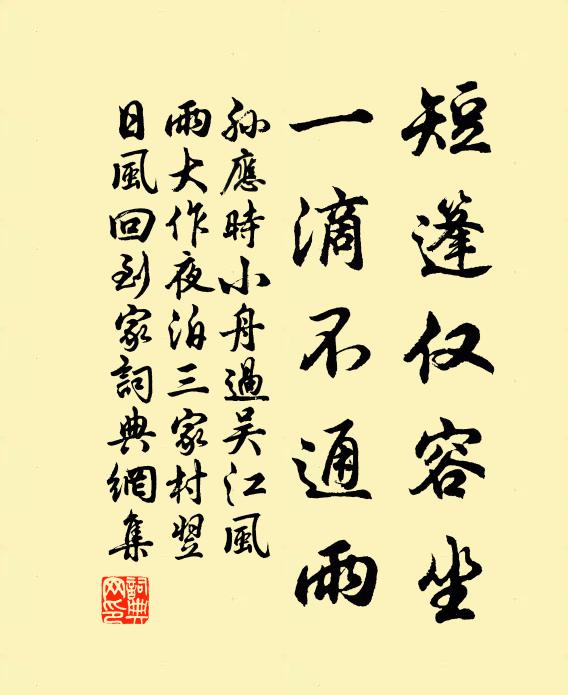 短篷仅容坐
一滴不通雨
孙應時小舟過吴江風
雨大作夜泊三家村翌
日風回到家詞典網集
詞典网印